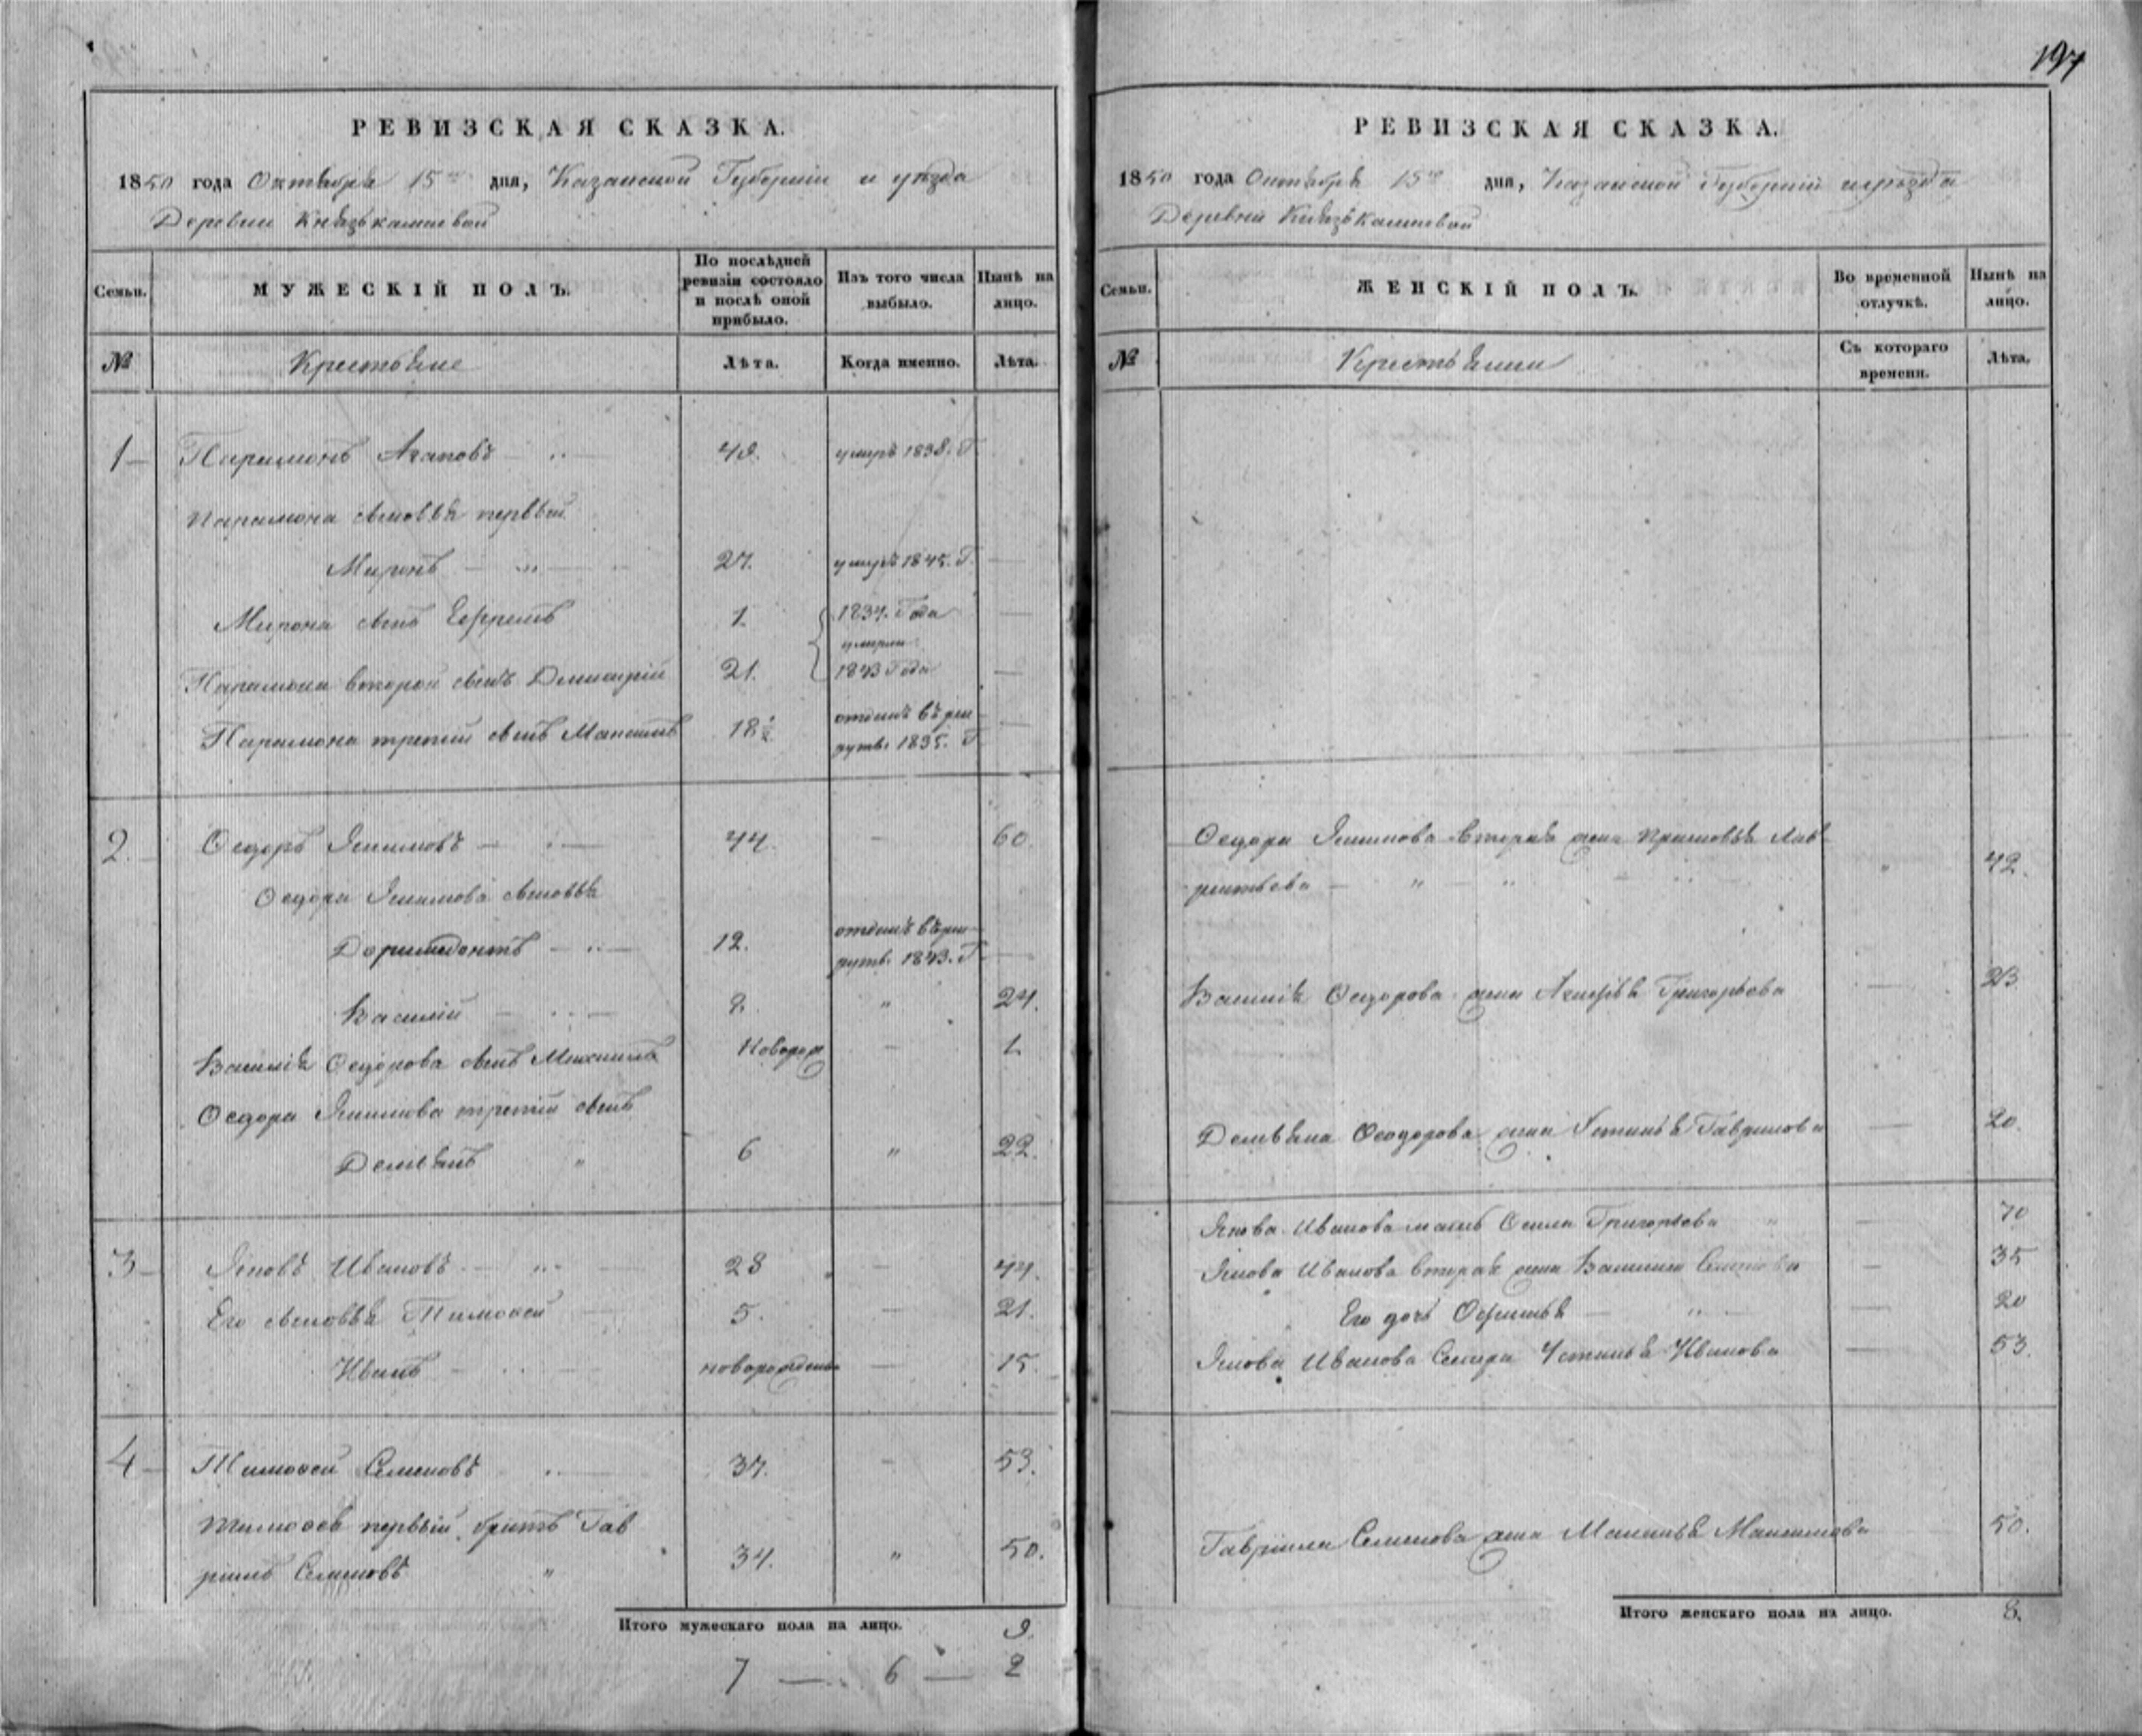 197
РЕВИЗСКАЯ СКАЗКА.
1850 года Октября 15го дня, Казанской Губерніи и уѣзда
Деревни Князькамаевой
Семьи.
МУЖЕСКІЙ ПОЛЪ.
По послѣдней ревизіи состояло и послѣ оной прибыло.
Изъ того числа выбыло.
Нынѣ на лицо.
№
Крестьяне
Лѣта.
Когда именно.
Лѣта.
1 Парамонъ Агаповъ 48. умеръ 1838. Г.
Парамона сыновья первый
Миронъ — „ — 27. умеръ 1845. Г. —
Мирона сынъ Ефремъ 1. 1837. Года —
умерли
Парамона второй сынъ Дмитрій 21. 1843 Года —
Парамона третій сынъ Максимъ 18½ отданъ въ рек —
руты 1835. Г.
2. Ѳедоръ Якимовъ — 44. — 60.
Ѳедора Якимова сыновья
Доримедонтъ — 12. отданъ въ рек-
руты 1843. Г. —
Василій — 8. „ 24.
Василья Ѳедорова сынъ Михаилъ Новорож — 1.
Ѳедора Якимова третій сынъ
Демьянъ „ 6 „ 22.
3 Яковъ Ивановъ — „ — 28 — 44.
Его сыновья Тимоѳей — 5. — 21.
Иванъ — новорожденъ — 15.
4 Тимоѳей Семеновъ 37. — 53.
Тимоѳея первый братъ Гав
рилъ Семеновъ „ 34. „ 50.
Итого мужескаго пола на лицо. 9.
7 — 6 — 2
РЕВИЗСКАЯ СКАЗКА.
1850 года Октября 15го дня, Казанской Губерніи и уѣзда
Деревни Князькамаевой
Семьи.
ЖЕНСКІЙ ПОЛЪ.
Во временной отлучкѣ.
Нынѣ на лицо.
№
Крестьянки
Съ котораго времени.
Лѣта.
Ѳедора Якимова вторая жена Прасковья Лав-
рентьева — „ — „ „ 42.
Василья Ѳедорова жена Агафья Григорьева — 23.
Демьяна Ѳеодорова жена Устинья Гаврилова — 20.
Якова Иванова мать Григорьева „ — 70
Якова Иванова вторая жена Василиса Семенова — 35
Его дочь Офимья — „ — 20
Якова Иванова Сестра Устинья Иванова — 53.
Гаврилы Семенова жена Маланья Максимова 50.
Итого женскаго пола на лицо. 8.